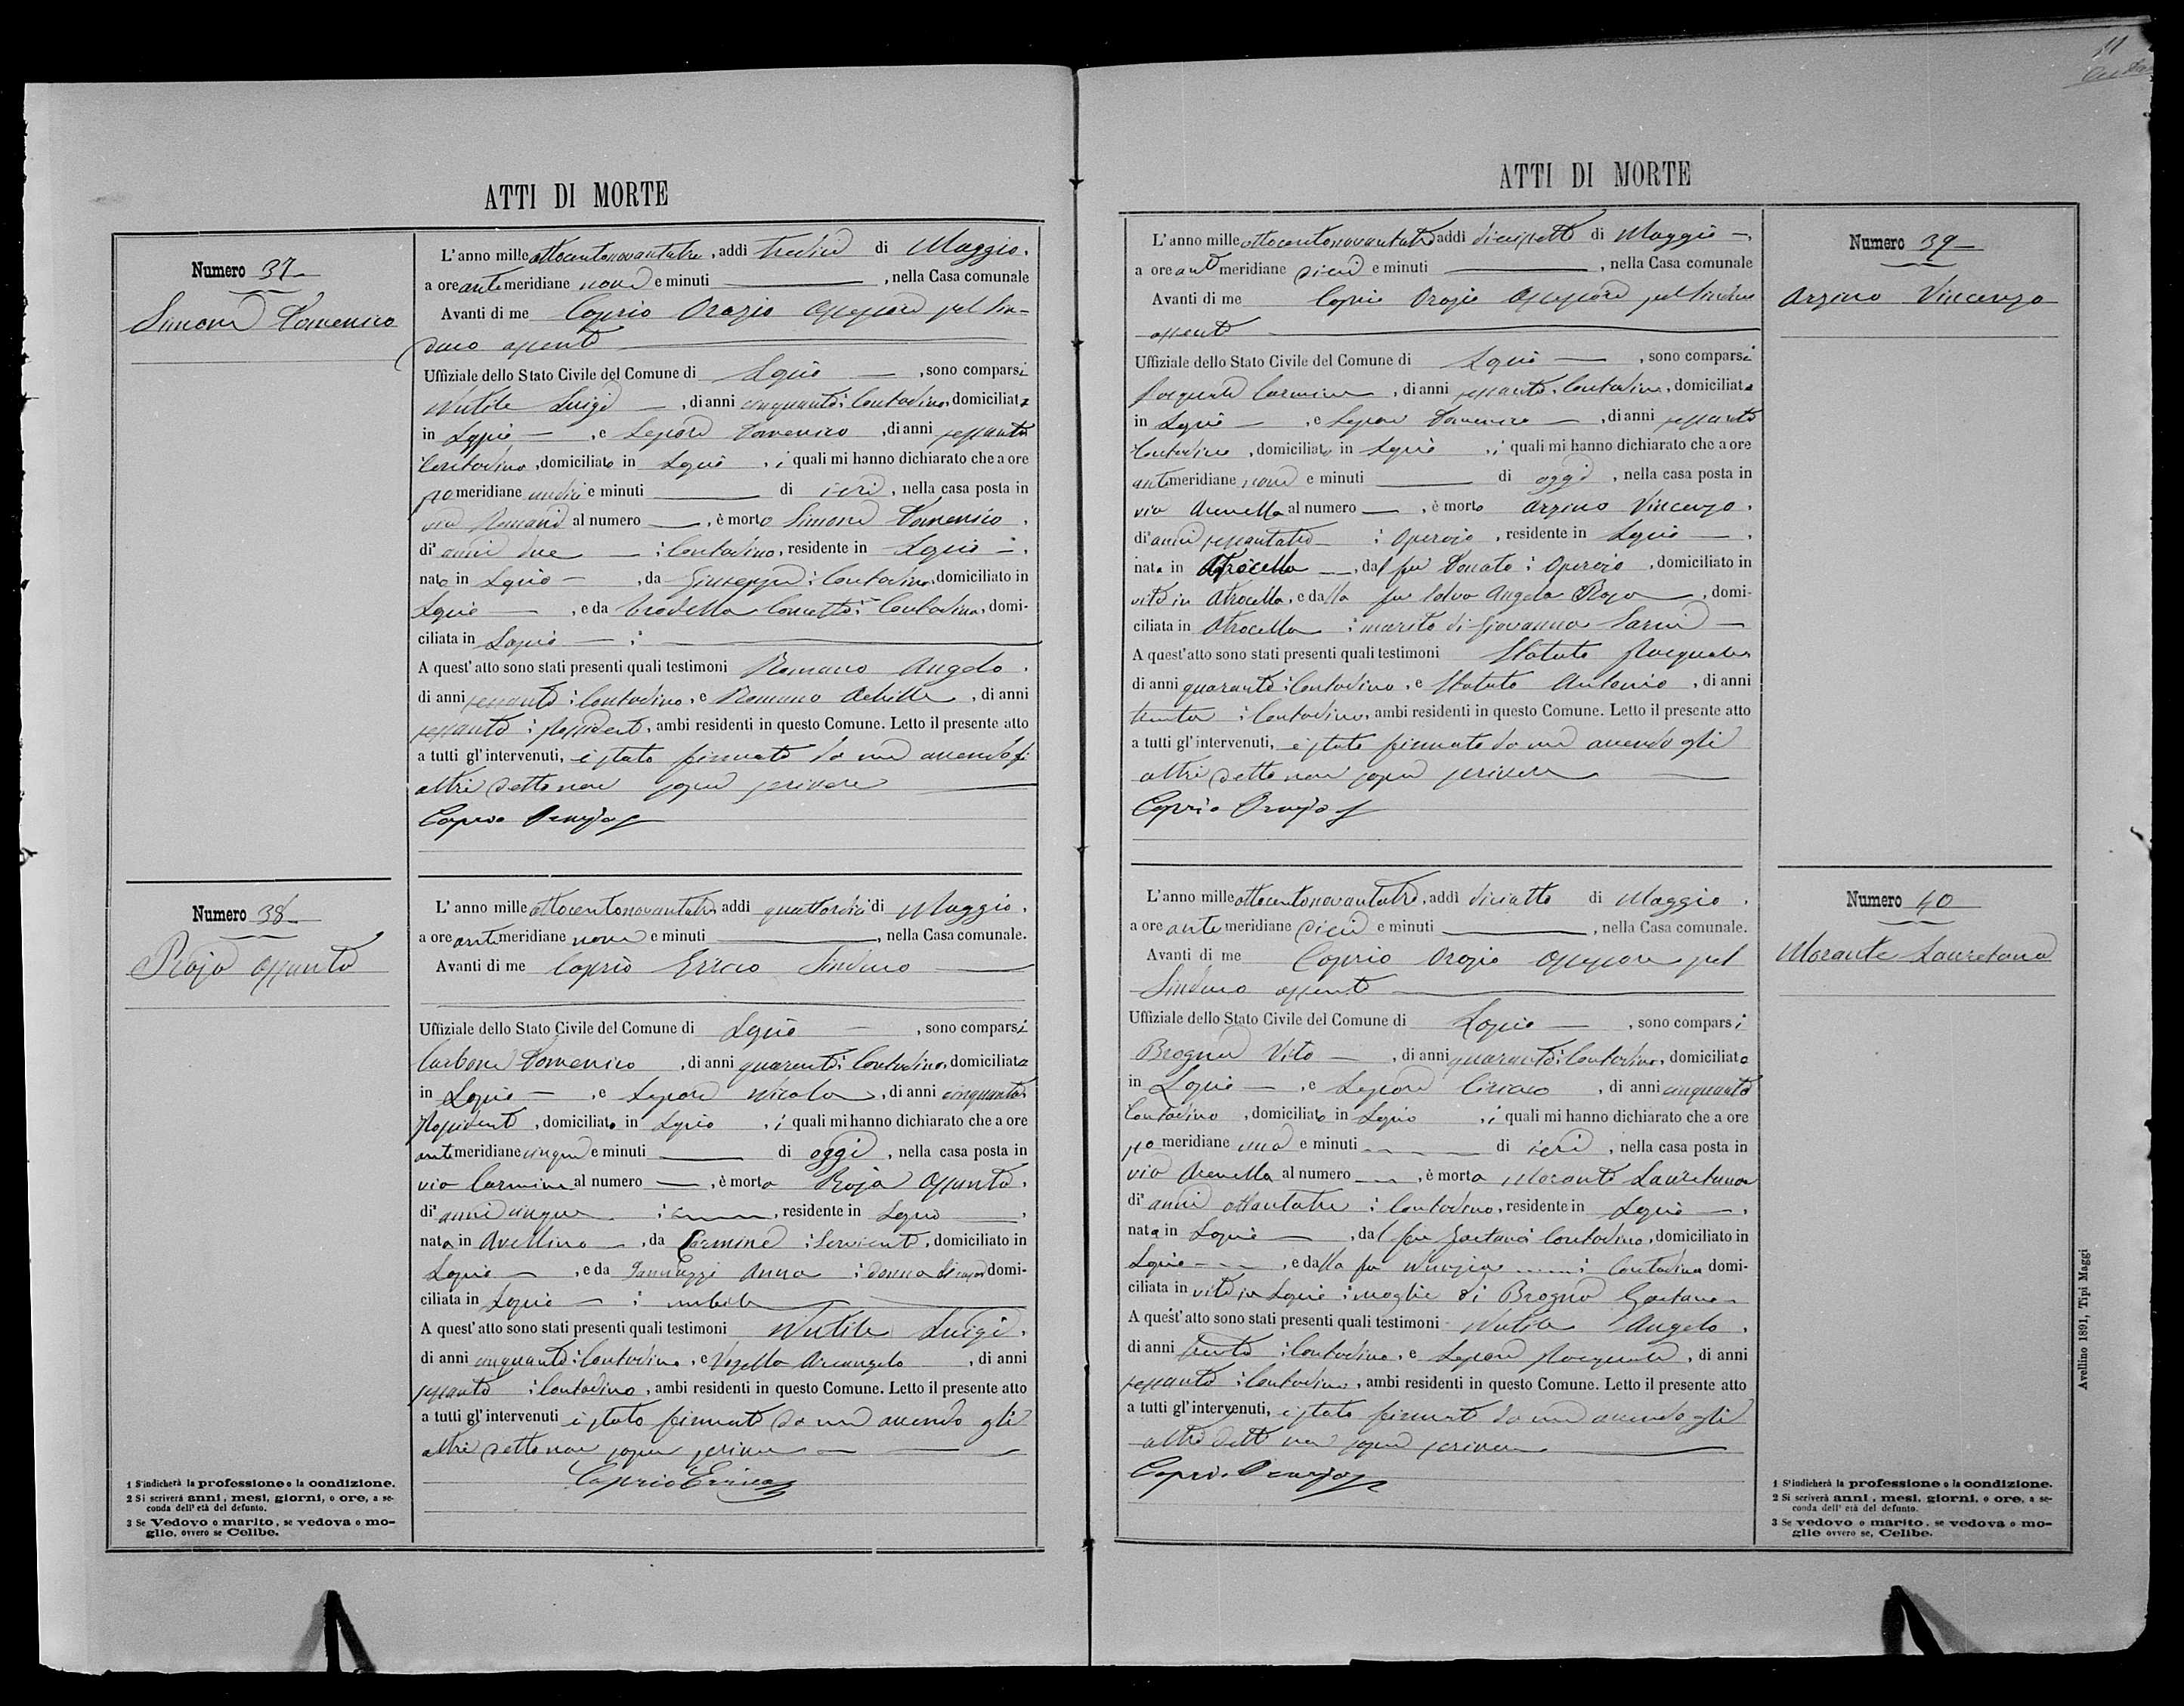 ATTI DI MORTE
Numero 37
Simone Domenico
L'anno mille ottocentonovantatre, addì tredici di Maggio,
a ore antimeridiane nove e minuti , nella Casa comunale
Avanti di me Caprio Orazio Assessore pel Sin-
daco assente
Uffiziale dello Stato Civile del Comune di Lapio , sono comparsi
Nutile Luigi , di anni cinquanta, Contadino, domiciliato
in Lapio , e Lepore Domenico , di anni sessanta
Contadino, domiciliato in Lapio , i quali mi hanno dichiarato che a ore
pomeridiane undici e minuti di ieri, nella casa posta in
via Romani al numero , è morto Simone Domenico,
di anni due : Contadino, residente in Lapio ,
nato in Lapio , da Giuseppe : Contadino, domiciliato in
Lapio , e da Concetta : Contadina, domi-
ciliata in Lapio :
A quest'atto sono stati presenti quali testimoni Romano Angelo,
di anni sessanta : Contadino, e Romano Achille , di anni
sessanta : Possidente, ambi residenti in questo Comune. Letto il presente atto
a tutti gl'intervenuti, è stato firmato da me avendo gli
altri detto non saper scrivere
Caprio Orazio
Numero 38
Roja Assunta
L'anno mille ottocentonovantatre, addì quattordici di Maggio,
a ore antimeridiane nove e minuti , nella Casa comunale.
Avanti di me Caprio Errico Sindaco
Uffiziale dello Stato Civile del Comune di Lapio , sono comparsi
Carbone Domenico , di anni quaranta : Contadino, domiciliato
in Lapio , e Lepore Nicola , di anni cinquanta
Possidente , domiciliato in Lapio , i quali mi hanno dichiarato che a ore
antimeridiane cinque e minuti di oggi , nella casa posta in
via Carmine al numero , è morta Roja Assunta,
di anni cinque : , residente in Lapio ,
nata in Avellino , da Carmine : Servente, domiciliato in
Lapio , e da Iannuzzi Anna : donna di casa domi-
ciliata in Lapio : nubile
A quest'atto sono stati presenti quali testimoni Nutile Luigi,
di anni cinquanta : Contadino, e Vozella Arcangelo , di anni
sessanta : Contadino, ambi residenti in questo Comune. Letto il presente atto
a tutti gl'intervenuti è stato firmato da me avendo gli
altri detto non saper scrivere
Caprio Errico
1 S'indicherà la professione o la condizione.
2 Si scriverà anni, mesi, giorni, o ore, a se-
conda dell'età del defunto.
3 Se Vedovo o marito, se vedova o mo-
glie, ovvero se Celibe.
11
ATTI DI MORTE
Numero 39
Arzino Vincenzo
L'anno mille ottocentonovantatre addì diecisette di Maggio ,
a ore antimeridiane dieci e minuti , nella Casa comunale
Avanti di me Caprio Orazio Assessore pel Sindaco
assente
Uffiziale dello Stato Civile del Comune di Lapio , sono comparsi
Carmine , di anni sessanta, Contadino, domiciliato
in Lapio , e Lepore Domenico , di anni sessanta
Contadino , domiciliato in Lapio , i quali mi hanno dichiarato che a ore
antimeridiane nove e minuti di oggi , nella casa posta in
via Arenella al numero , è morto Arzino Vincenzo,
di anni sessantatre : Operaio , residente in Lapio ,
nato in Atrocella , dal fu Donato : Operaio , domiciliato in
vita in Atrocella, e dalla fu Angela Rosa , domi-
ciliata in Atrocella : marito di Giovanna Sarni
A quest'atto sono stati presenti quali testimoni Statuto Pasquale
di anni quaranta : Contadino, e Statuto Antonio , di anni
trenta : Contadino, ambi residenti in questo Comune. Letto il presente atto
a tutti gl'intervenuti, è stato firmato da me avendo gli
altri detto non saper scrivere
Caprio Orazio
Numero 40
Morante Lauretana
L'anno mille ottocentonovantatre, addì diciotto di Maggio ,
a ore antimeridiane dieci e minuti , nella Casa comunale.
Avanti di me Caprio Orazio Assessore pel
Sindaco assente
Uffiziale dello Stato Civile del Comune di Lapio , sono comparsi
Brogna Vito , di anni quaranta : Contadino, domiciliato
in Lapio , e Lepore Ciriaco , di anni cinquanta
Contadino , domiciliato in Lapio , i quali mi hanno dichiarato che a ore
pomeridiane una e minuti di ieri , nella casa posta in
via Arenella al numero , è morta Morante Lauretana
di anni ottantatre : Contadina, residente in Lapio ,
nata in Lapio , dal fu Gaetano Contadino, domiciliato in
Lapio , e dalla fu Nunzia : Contadina domi-
ciliata in vita in Lapio : moglie di Brogna Gaetano
A quest'atto sono stati presenti quali testimoni Nutile Angelo,
di anni trenta : Contadino, e Lepore Pasquale , di anni
sessanta : Contadino, ambi residenti in questo Comune. Letto il presente atto
a tutti gl'intervenuti, è stato firmato da me avendo gli
altri detto non saper scrivere
Caprio Orazio
1 S'indicherà la professione o la condizione.
2 Si scriverà anni, mesi, giorni, o ore, a se-
conda dell'età del defunto.
3 Se vedovo o marito, se vedova o mo-
glie ovvero se, Celibe.
Avellino 1891, Tipi Maggi